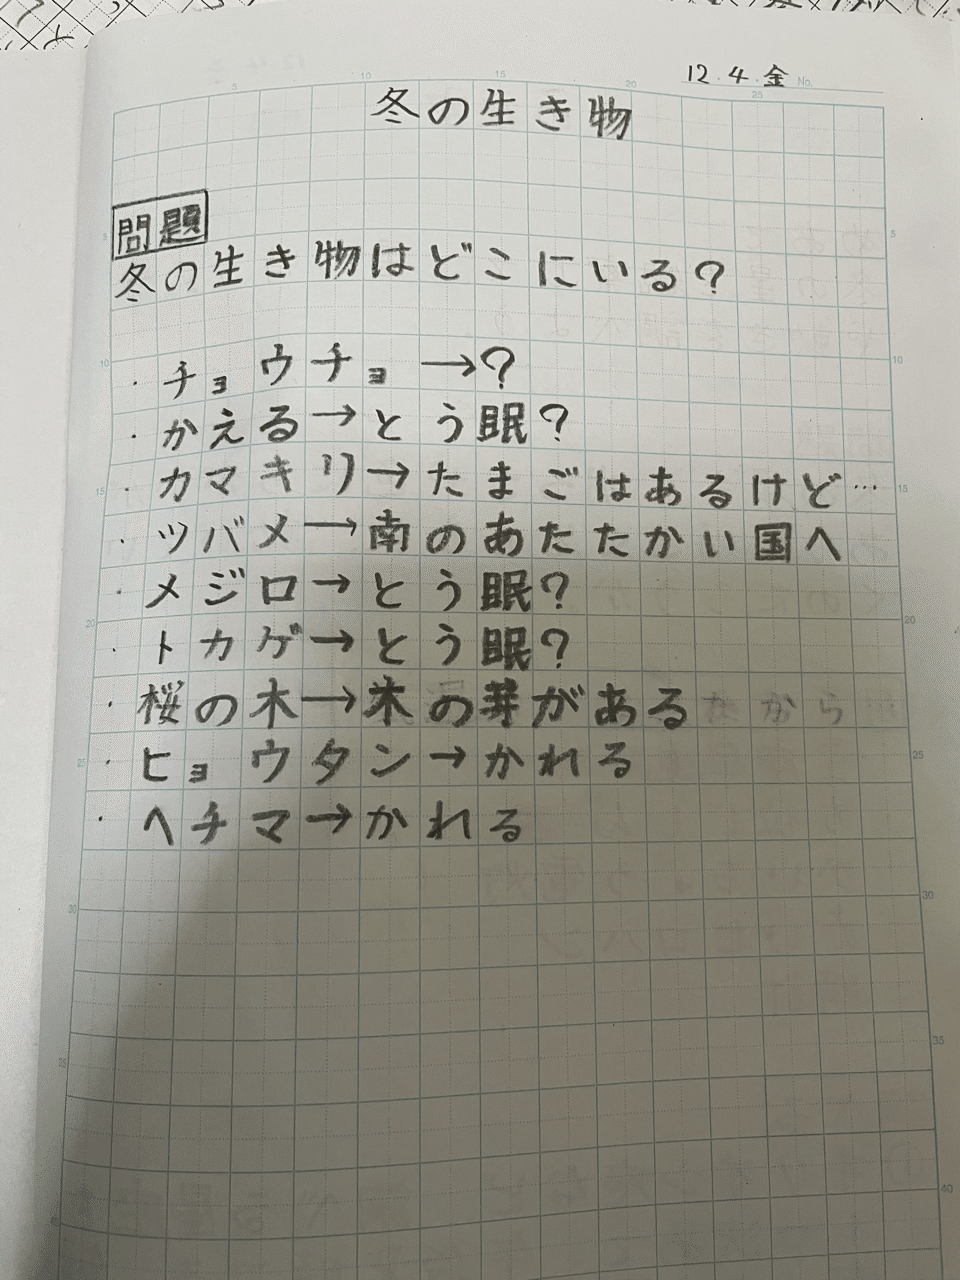 12.4.金 No.
冬の生き物
問題
冬の生き物はどこにいる?
・チョウチョ→?
・かえる→とう眠?
・カマキリ→たまごはあるけど…
・ツバメ→南のあたたかい国へ
・メジロ→とう眠?
・トカゲ→とう眠?
・桜の木→木の芽がある
・ヒョウタン→かれる
・ヘチマ→かれる